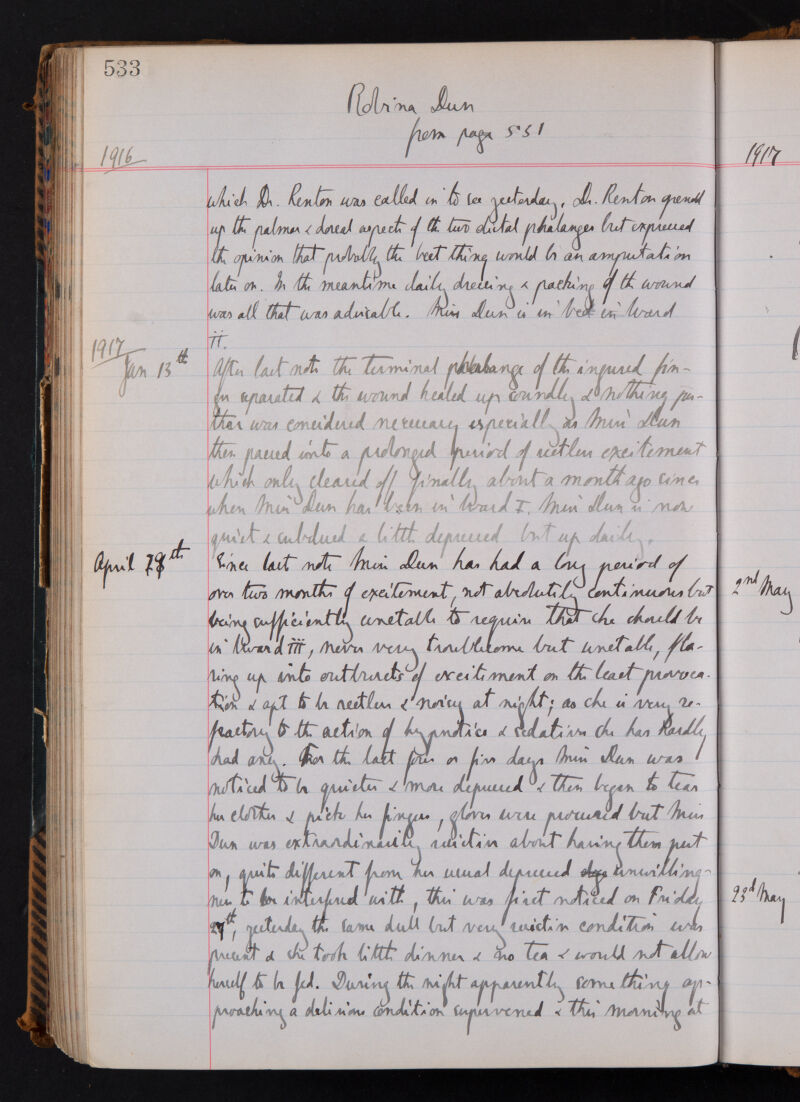 533
Robina Dun
from page 551
1916
1917
which Dr. Renton was called in to see yesterday. Dr. Renton opened
up the palmar & dorsal aspects of the two distal phalanges but expressed
the opinion that probably the best thing would be an amputation
later on. In the meantime daily dressing & packing of the wound
was all that was advisable. Miss Dun is in bed in Ward
II.
1917
Jan 13th
After last note the terminal phalange of the ingured fin-
ger separated & the wound healed up soundly & nothing fur-
ther was considered necessary especially as Miss Dun
then passed into a prolonged period of restless excitement
which only cleared off finally about a month ago since
when Miss Dun has been in Ward I. Miss Dun is now
quiet & subdued a little depressed but up daily.
April 29th
Since last note Miss Dun has had a long period of
over two months of excitement, not absolutely continuous but
being sufficiently unstable to require that she should be
in Ward III, never very troublesome but unstable, fla-
ring up into outbursts of excitement on the least provoca-
tion & apt to be restless & noisy at night; as she is very re-
fractory to the action of hypnotics & sedatives she has hardly
had any. For the last four or five days Miss Dun was
noticed to be quieter & more depressed & then began to tear
her clothes & pick her fingers, gloves were procured but Miss
Dun was extraordinarily resistive about having them put
on, quite different from her usual depressed unwilling-
ness to be interfered with, this was first noticed on Friday
27th, yesterday the same dull but very resistive condition was
present & she took little dinner & no tea & would not allow
herself to be fed. During the night apparently something ap-
proaching a delirious condition supervened & this morning at
2nd May
23d May